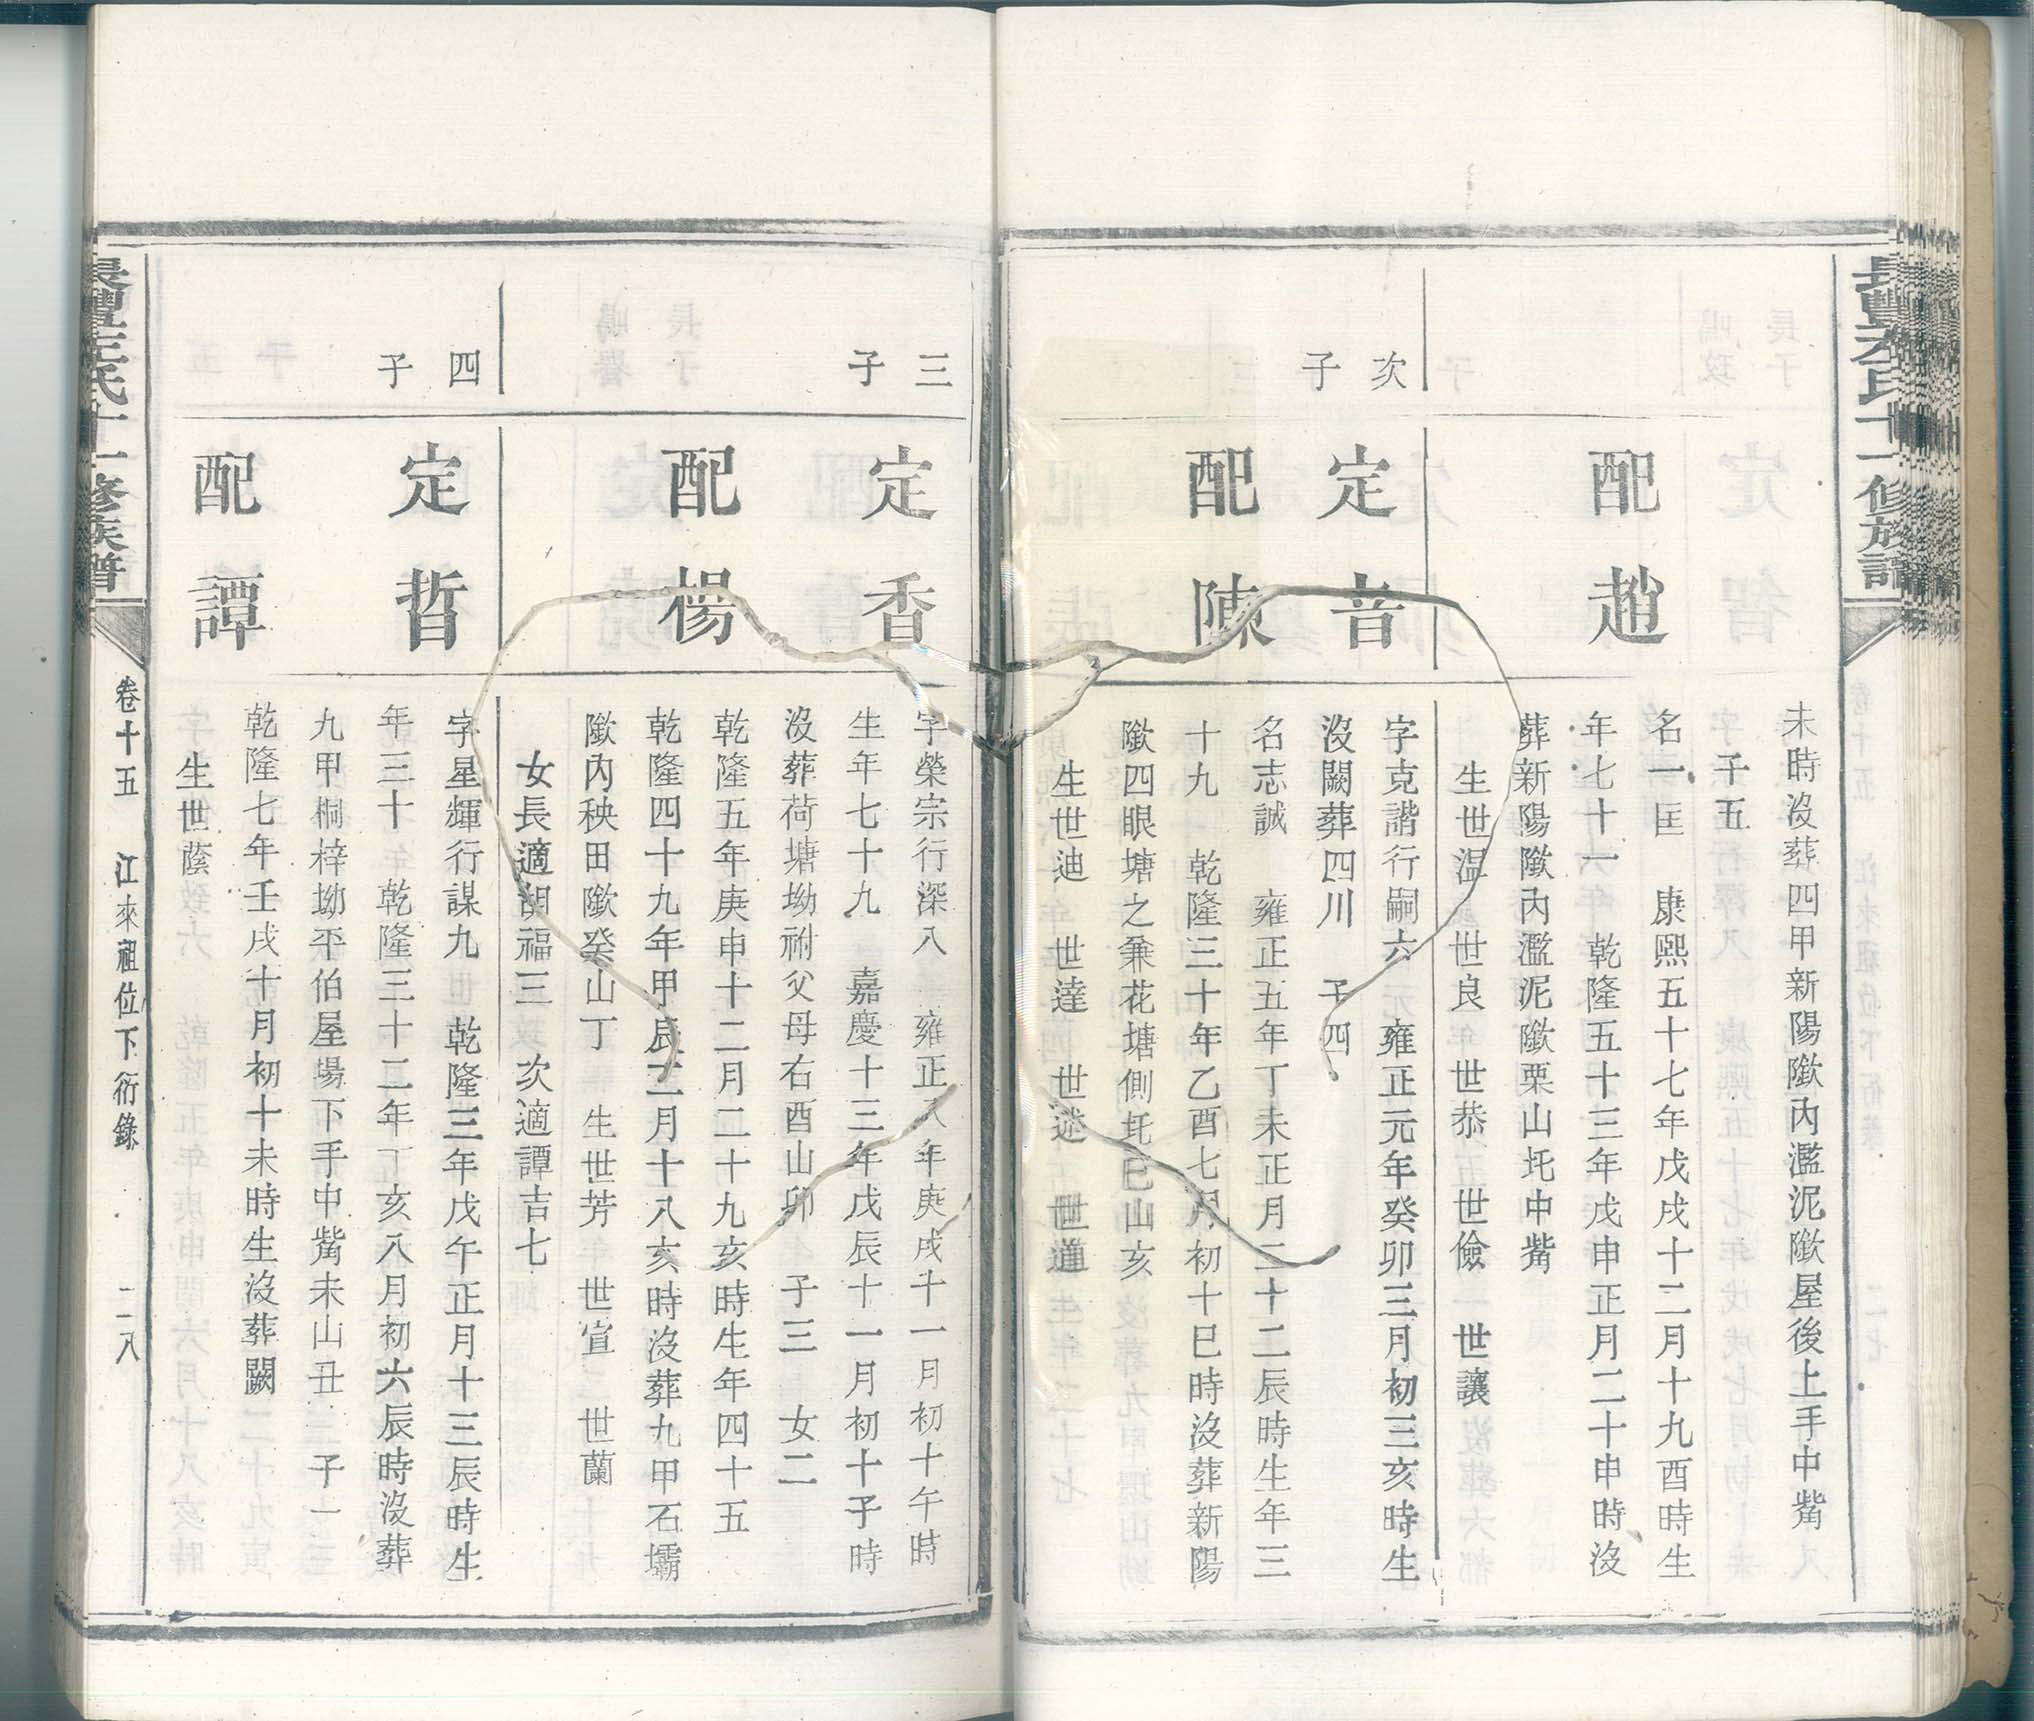 未時沒葬四甲新陽歘內濫泥歘屋後上手中觜
子五
配趙
名一匡　康熙五十七年戊戌十二月十九酉時生
年七十一　乾隆五十三年戊申正月二十申時沒
葬新陽歘內濫泥歘栗山圫中觜
生世溫　世良　世恭　世儉　世讓
次子
定音
字克諧行嗣六　雍正元年癸卯三月初三亥時生
沒闕葬四川　子四
配陳
名志誠　雍正五年丁未正月二十二辰時生年三
十九　乾隆三十年乙酉七月初十巳時沒葬新陽
歘四眼塘之兼花塘側圫巳山亥
生世迪　世達　世述　世道
三子
定香
字榮宗行深八　雍正八年庚戌十一月初十午時
生年七十九　嘉慶十三年戊辰十一月初十子時
沒葬荷塘坳祔父母右酉山卯　子三　女二
配楊
乾隆五年庚申十二月二十九亥時生年四十五
乾隆四十九年甲辰二月十八亥時沒葬九甲石壩
歘內秧田歘癸山丁　生世芳　世宣　世蘭
女長適胡福三　次適譚吉七
四子
定哲
字星輝行謀九　乾隆三年戊午正月十三辰時生
年三十　乾隆三十二年丁亥八月初六辰時沒葬
九甲桐梓坳平伯屋場下手中觜未山丑　子一
配譚
乾隆七年壬戌十月初十未時生沒葬闕
生世蔭
卷十五　江來祖位下衍錄　二八